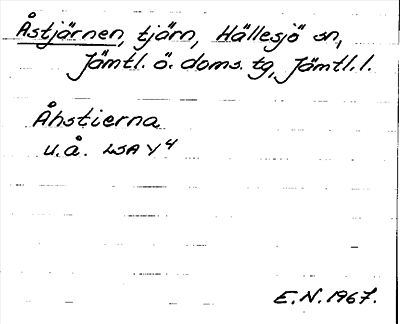 Åstjärnen, tjärn, Hällesjö sn,
Jämtl. ö. doms. tg, Jämtl. l.
Åhstierna
u.å. LSA Y4
E.N. 1967.